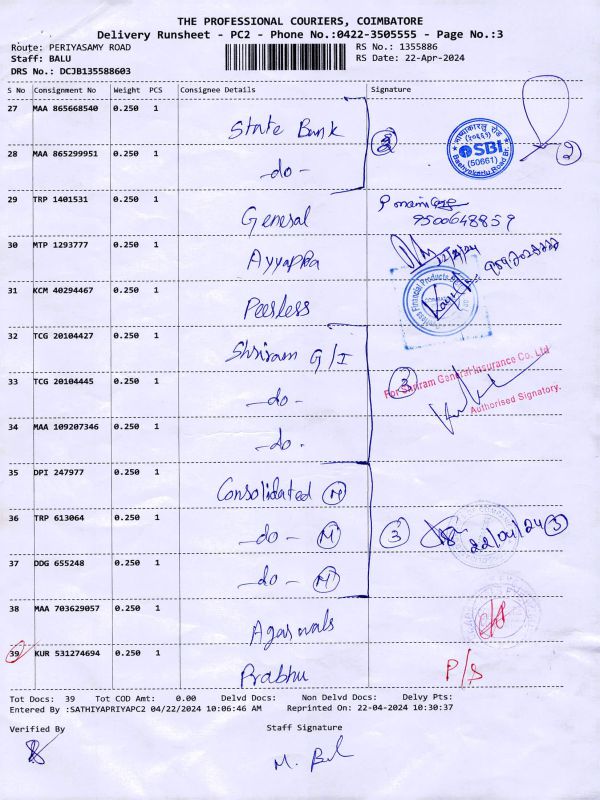 THE PROFESSIONAL COURIERS, COIMBATORE
Delivery Runsheet - PC2 - Phone No.:0422-3505555 - Page No.:3
Route: PERIYASAMY ROAD RS No.: 1355886
Staff: BALU RS Date: 22-Apr-2024
DRS No.: DCJB135588603
S No Consignment No Weight PCS Consignee Details Signature
27 MAA 865668540 0.250 1 State Bank
SBI
(50661)
28 MAA 865299951 0.250 1 -do- 2
29 TRP 1401531 0.250 1 General
9500648859
30 MTP 1293777 0.250 1 Ayyappa
31 KCM 40294467 0.250 1 Peerless
32 TCG 20104427 0.250 1 Shriram G/I
For Shriram General Insurance Co. Ltd
33 TCG 20104445 0.250 1 -do- 3
Authorised Signatory.
34 MAA 109207346 0.250 1 -do-
35 DPI 247977 0.250 1 Consolidated M
36 TRP 613064 0.250 1 -do- M 3 22/04/24 3
37 DDG 655248 0.250 1 -do- M
38 MAA 703629057 0.250 1 Agarwals
39 KUR 531274694 0.250 1 Prabhu P/S
Tot Docs: 39 Tot COD Amt: 0.00 Delvd Docs: Non Delvd Docs: Delvy Pts:
Entered By :SATHIYAPRIYAPC2 04/22/2024 10:06:46 AM Reprinted On: 22-04-2024 10:30:37
Verified By Staff Signature